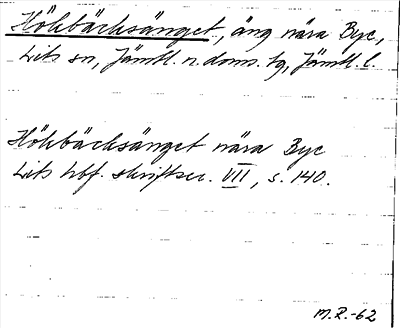 Hökbäcksänget, äng nära Bye,
Lits sn, Jämtl. n. doms. tg, Jämtl. l.
Hökbäcksänget nära Bye
Lits hbf. skriftser. VII, s. 140.
M.R.-62